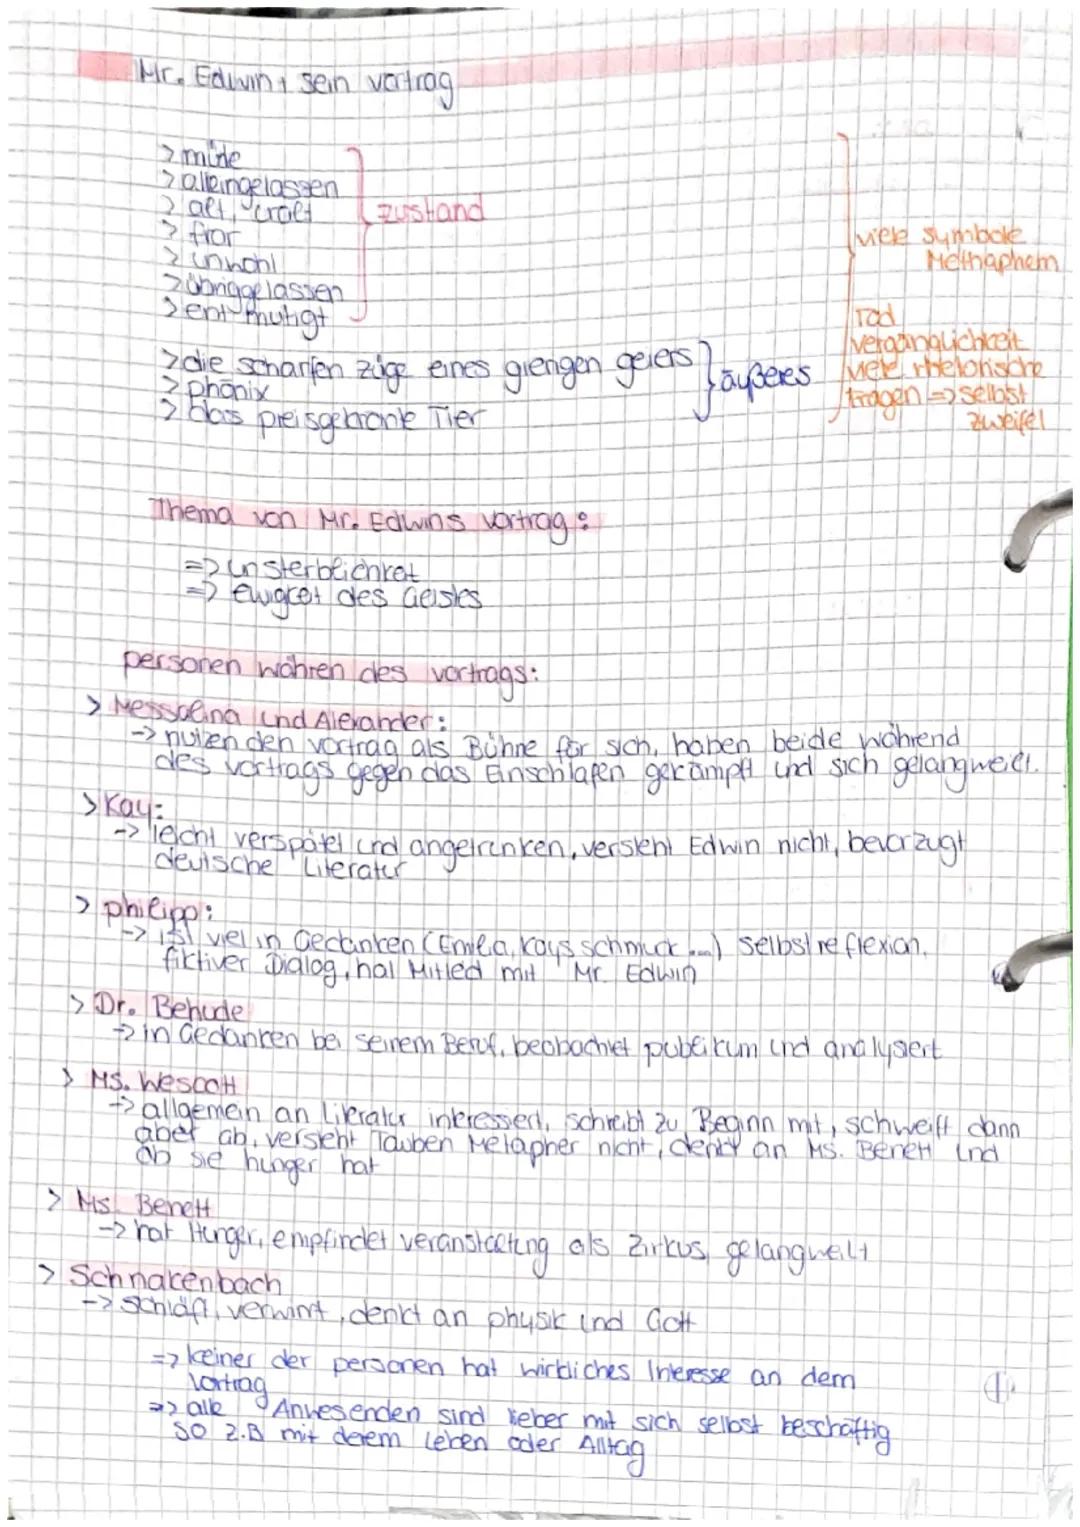 Mr. Edwin + sein vortrag
> müde
> alleingelassen
> alt, uralt
> fror
> unwohl
> übriggelassen
> entmutigt
zustand
> die scharfen züge eines gierigen geiers
> phönix
> das preisgekrönte Tier
äußeres
viele symbole
Methaphern
Tod
vergänglichkeit
viele rhetorische
fragen => selbst
zweifel
Thema von Mr. Edwins vortrag:
=> unsterblichkeit
=> Ewigkeit des Geistes
personen währen des vortrags:
> Messalina und Alexander:
-> nutzen den vortrag als Bühne für sich, haben beide während
des vortrags gegen das Einschlafen gekämpft und sich gelangweilt.
> Kay:
-> leicht verspätet und angetrunken, versteht Edwin nicht, bevorzugt
deutsche Literatur
> philipp:
-> ist viel in Gedanken (Emilia, Kays schmuck ...) selbstreflexion,
fiktiver Dialog, hat Mitled mit Mr. Edwin
> Dr. Behude
-> in Gedanken bei seinem Beruf, beobachtet publikum und analysiert
> Ms. Wescott
-> allgemein an Literatur interessiert, schreibt zu Beginn mit, schweift dann
aber ab, versteht Tauben Metapher nicht, denkt an Ms. Benett und
ob sie hunger hat
> Ms. Benett
-> hat Hunger, empfindet veranstaltung als Zirkus, gelangweilt
> Schnakenbach
-> schläft, verwirrt, denkt an physik und Gott
=> keiner der personen hat wirkliches Interesse an dem
vortrag
=> alle Anwesenden sind lieber mit sich selbst beschäftig
so z.B mit derem Leben oder Alltag